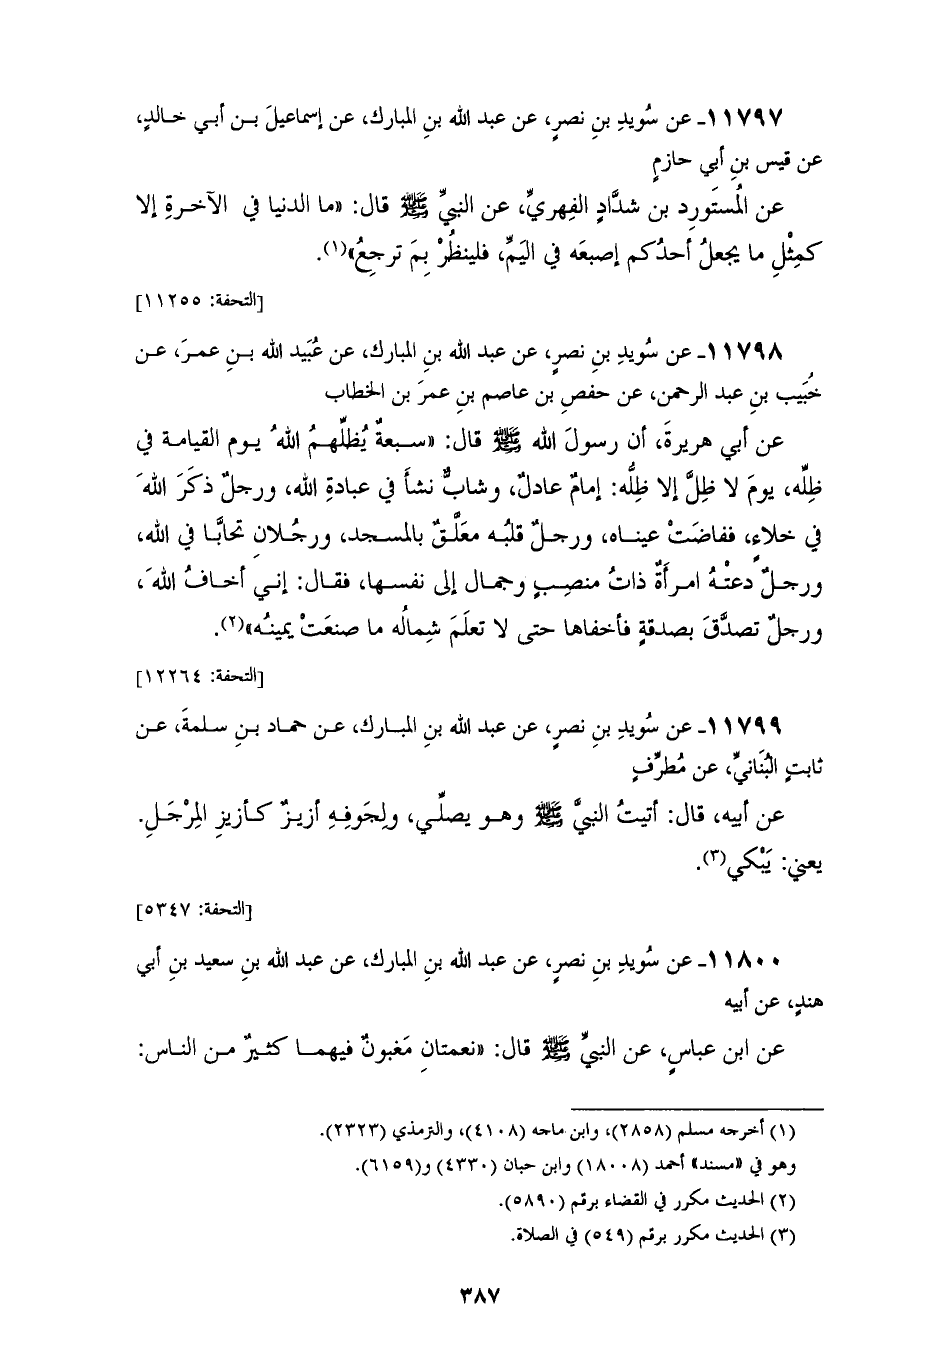 ١١٧٩٧ـ عن سُويدِ بنِ نصرٍ، عن عبد الله بنِ المبارك، عن إسماعيلَ بـن أبـي خـالدٍ،
عن قيس بنِ أبي حازمٍ
عن المُستَورِد بن شدَّادٍ الفِهريِّ، عن النبيِّ ﷺ قال: «ما الدنيا في الآخـرةِ إلا
كمِثْلِ ما يجعلُ أحدُكم إصبعَه في اليَمِّ، فلينظُرْ بِمَ ترجِعُ»(١).
[التحفة: ١١٢٥٥]
١١٧٩٨ـ عن سُويدِ بنِ نصرٍ، عن عبد الله بنِ المبارك، عن عُبَيد الله بـنِ عمـرَ، عـن
خُبَيب بنِ عبد الرحمن، عن حفصِ بن عاصم بنِ عمرَ بن الخطاب
عن أبي هريرةَ، أن رسولَ الله ﷺ قال: «سـبعةٌ يُظلِّهـمُ اللهُ يـوم القيامـة في
ظِلِّه، يومَ لا ظِلَّ إلا ظِلُّه: إمامٌ عادلٌ، وشابٌّ نشأَ في عبادةِ الله، ورجلٌ ذكَرَ اللهَ
في خلاءٍ، ففاضَتْ عينـاه، ورجـلٌ قلبُـه معَلَّـقٌ بالمسـجد، ورجُـلانِ تحابَّـا في الله،
ورجـلٌ دعتْـهُ امـرأةٌ ذاتُ منصِـبٍ وجمـال إلى نفسـها، فقـال: إنـي أخـافُ اللهَ،
ورجلٌ تصدَّقَ بصدقةٍ فأخفاها حتى لا تعلَمَ شِمالُه ما صنعَتْ يمينُـه»(٢).
[التحفة: ١٢٢٦٤]
١١٧٩٩ـ عن سُويدِ بنِ نصرٍ، عن عبد الله بنِ المبـارك، عـن حمـاد بـنِ سـلمةَ، عـن
ثابتٍ البُنَانيِّ، عن مُطرِّفٍ
عن أبيه، قال: أتيتُ النبيَّ ﷺ وهـو يصلّـي، ولِجَوفِـهِ أزيـزٌ كـأزيزِ المِرْجَـلِ.
يعني: يَبْكي(٣).
[التحفة: ٥٣٤٧]
١١٨٠٠ـ عن سُويدِ بنِ نصرٍ، عن عبد الله بنِ المبارك، عن عبد الله بنِ سعيد بنِ أبي
هندٍ، عن أبيه
عن ابن عباسٍ، عن النبيِّ ﷺ قال: «نعمتانِ مَغبونٌ فيهمـا كثـيرٌ مـن النـاس:
(١) أخرجه مسلم (٢٨٥٨)، وابن ماجه (٤١٠٨)، والترمذي (٢٣٢٣).
وهو في «مسند» أحمد (١٨٠٠٨) وابن حبان (٤٣٣٠) و(٦١٥٩).
(٢) الحديث مكرر في القضاء برقم (٥٨٩٠).
(٣) الحديث مكرر برقم (٥٤٩) في الصلاة.
٣٨٧